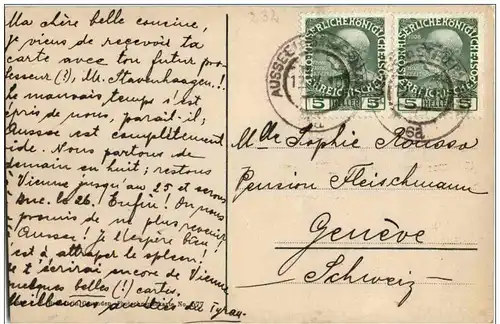 232
Ma chère belle cousine,
je viens de recevoir ta
carte avec ton futur pro-
fesseur (!), Mr. Stavenhagen!!
Le mauvais temps s'est
épris de nous, paraît-il;
Aussee est complètement
vide. Nous partons de
demain en huit; restons
à Vienne jusqu'au 25 et serons
à Buc. le 26. Enfin! On nous
a promis de ne plus revenir
à Aussee! Je l'espère bien!
C'est à attraper le spleen!
Je t'écrirai encore de Vienne
quelques belles (!) cartes.
Meilleures de
No. 677
KAISERLICHE KÖNIGLICHE
ÖSTERREICHISCHE POST
5 HELLER 5
KAISERLICHE KÖNIGLICHE
ÖSTERREICHISCHE POST
5 HELLER 5
AUSSEE
6a
Mlle Sophie Rousso
Pension Fleischmann
Genève
Schweiz